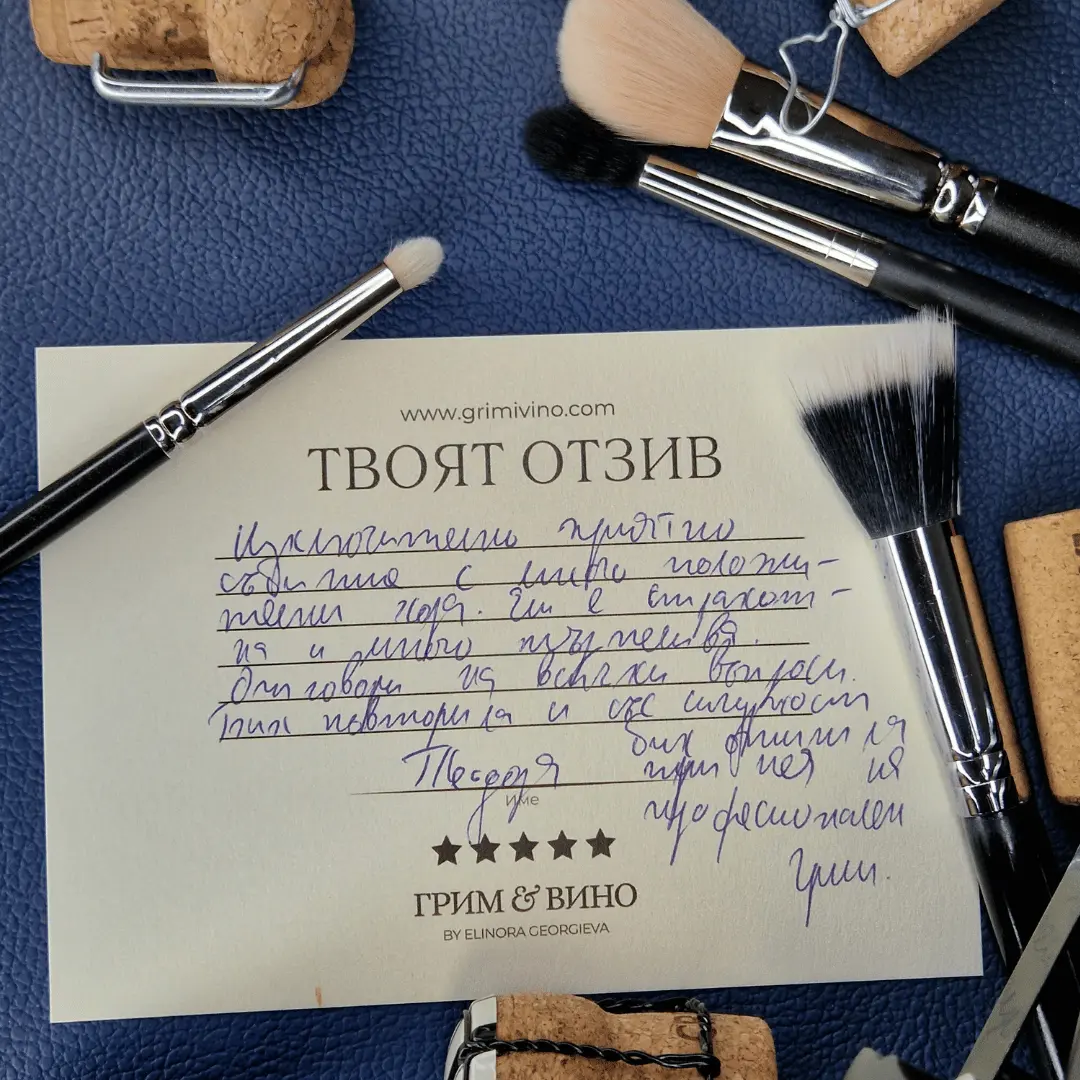 www.grimivino.com
ТВОЯТ ОТЗИВ
Изключително приятно
събитие с много положи-
телни хора. Ели е страхот-
на и много търпелива.
Отговори на всички въпроси.
Бих повторила и със сигурност
бих отишла
Теодора при нея на
име
професионален
грим.
ГРИМ & ВИНО
BY ELINORA GEORGIEVA